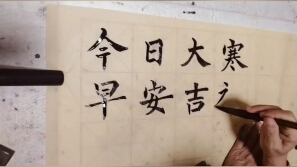 今日大寒
早安吉